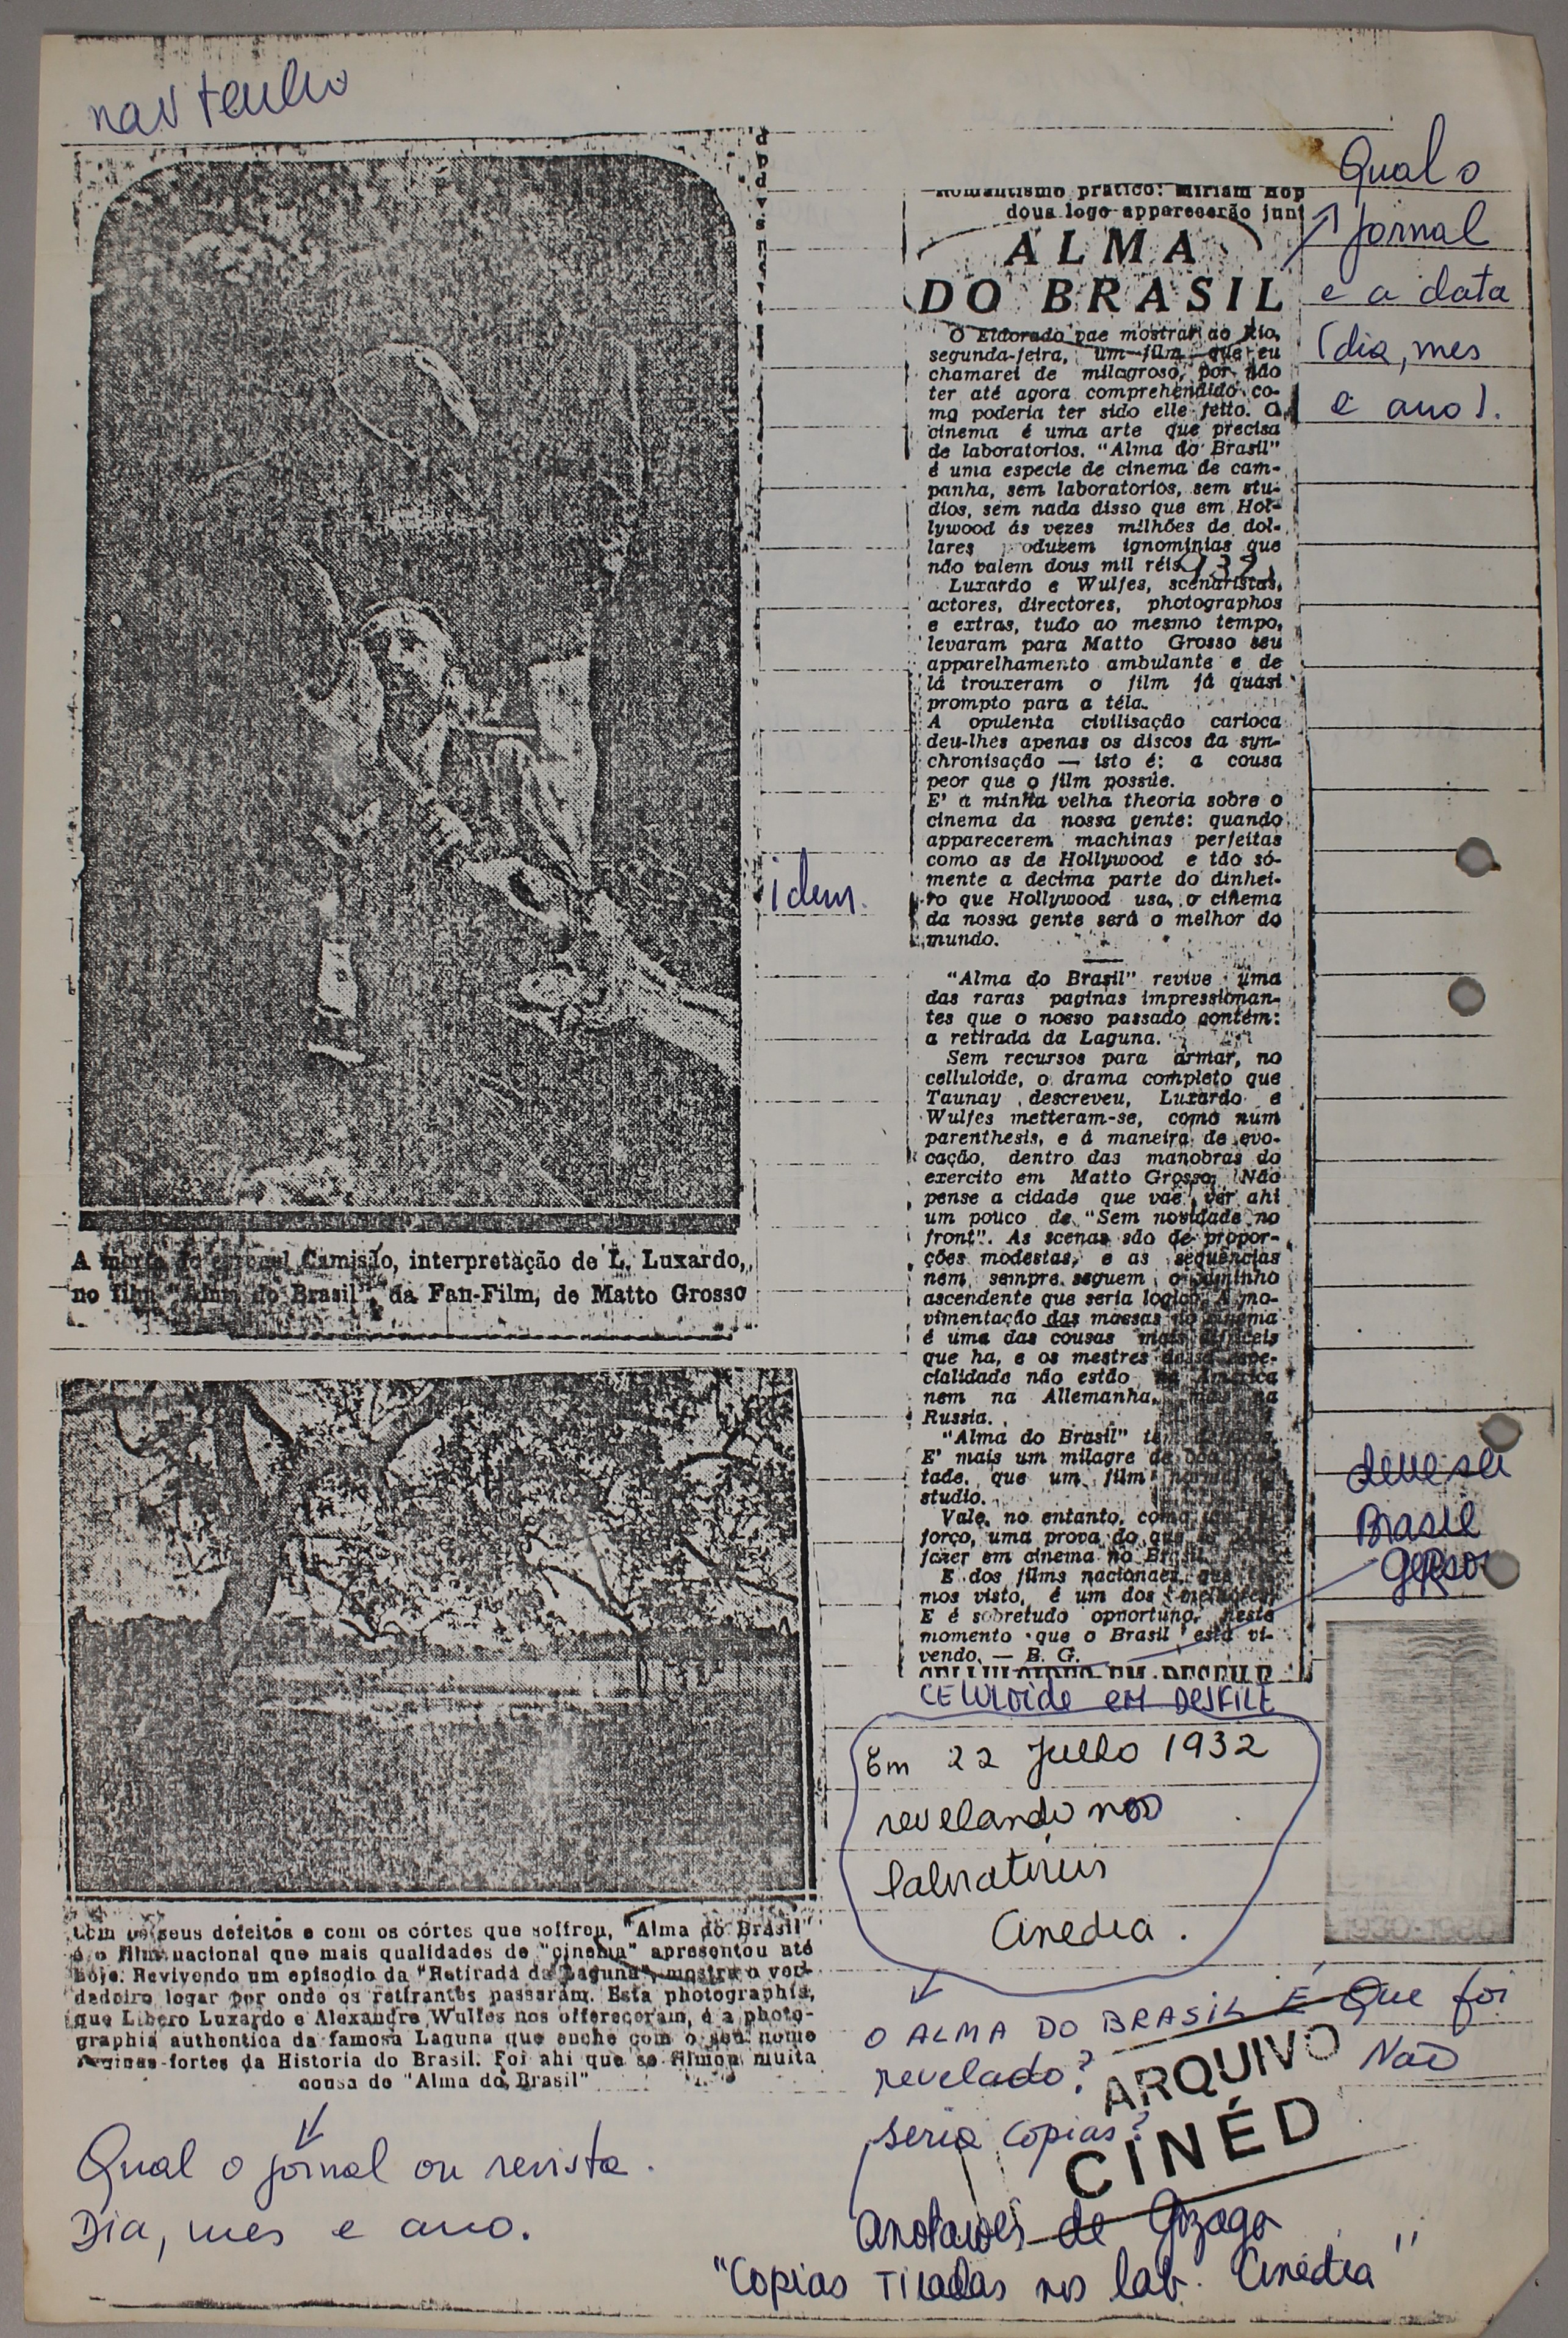 não tenho
A morte do coronel Camisão, interpretação de L. Luxardo,
no film "Alma do Brasil", da Fan-Film, de Matto Grosso
idem.
Com os seus defeitos e com os córtes que soffreu, "Alma do Brasil"
é o film nacional que mais qualidades de "cinema" apresentou até
hoje. Revivendo um episodio da "Retirada da Laguna", mostra o ver-
dadeiro logar por onde os retirantes passaram. Esta photographia,
que Libero Luxardo e Alexandre Wulfes nos offereceram, é a photo-
graphia authentica da famosa Laguna que enche com o seu nome
paginas fortes da Historia do Brasil. Foi ahi que se filmou muita
cousa de "Alma do Brasil"
Qual o jornal ou revista.
Dia, mes e ano.
Romantismo pratico: Miriam Hop
dous logo apparecerão junt
ALMA
DO BRASIL
O Eldorado vae mostrar ao Rio,
segunda-feira, um film que eu
chamarei de milagroso, por não
ter até agora comprehendido co-
mo poderia ter sido elle feito. O
cinema é uma arte que precisa
de laboratorios. "Alma do Brasil"
é uma especie de cinema de cam-
panha, sem laboratorios, sem stu-
dios, sem nada disso que em Hol-
lywood ás vezes milhões de dol-
lares produzem ignominias que
não valem dous mil réis.
Luxardo e Wulfes, scenaristas,
actores, directores, photographos
e extras, tudo ao mesmo tempo,
levaram para Matto Grosso seu
apparelhamento ambulante e de
lá trouxeram o film já quasi
prompto para a téla.
A opulenta civilisação carioca
deu-lhes apenas os discos da syn-
chronisação — isto é: a cousa
peor que o film possúe.
E' a minha velha theoria sobre o
cinema da nossa gente: quando
apparecerem machinas perfeitas
como as de Hollywood e tão só-
mente a decima parte do dinhei-
ro que Hollywood usa, o cinema
da nossa gente será o melhor do
mundo.
"Alma do Brasil" revive uma
das raras paginas impressionan-
tes que o nosso passado contém:
a retirada da Laguna.
Sem recursos para armar, no
celluloide, o drama completo que
Taunay descreveu, Luxardo e
Wulfes metteram-se, como num
parenthesis, e á maneira de evo-
cação, dentro das manobras do
exercito em Matto Grosso. Não
pense a cidade que vae ver ahi
um pouco de "Sem novidade no
front". As scenas são de propor-
ções modestas, e as sequencias
nem sempre seguem o caminho
ascendente que seria logico. A mo-
vimentação das massas no cinema
é uma das cousas mais difficeis
que ha, e os mestres dessa espe-
cialidade não estão na America
nem na Allemanha, mas na
Russia.
"Alma do Brasil" tem defeitos.
E' mais um milagre de boa von-
tade, que um film normal de
studio.
Vale, no entanto, como um es-
forço, uma prova do que se póde
fazer em cinema no Brasil.
E dos films nacionaes, que te-
mos visto, é um dos melhores.
E é sobretudo opportuno, neste
momento que o Brasil está vi-
vendo. — B. G.
CELLULOIDES EM DESFILE
CELULOIDE EM DESFILE
Qual o
jornal
e a data
(dia, mes
e ano).
deve ser
Brasil
Gerson
Em 22 Julho 1932
revelando nos
laboratorios
Cinedia.
O ALMA DO BRASIL É que foi
revelado? Não
seria copias?
ARQUIVO
CINÉD
Anotações de Gonzaga
"Copias Tiradas nos lab. Cinédia"